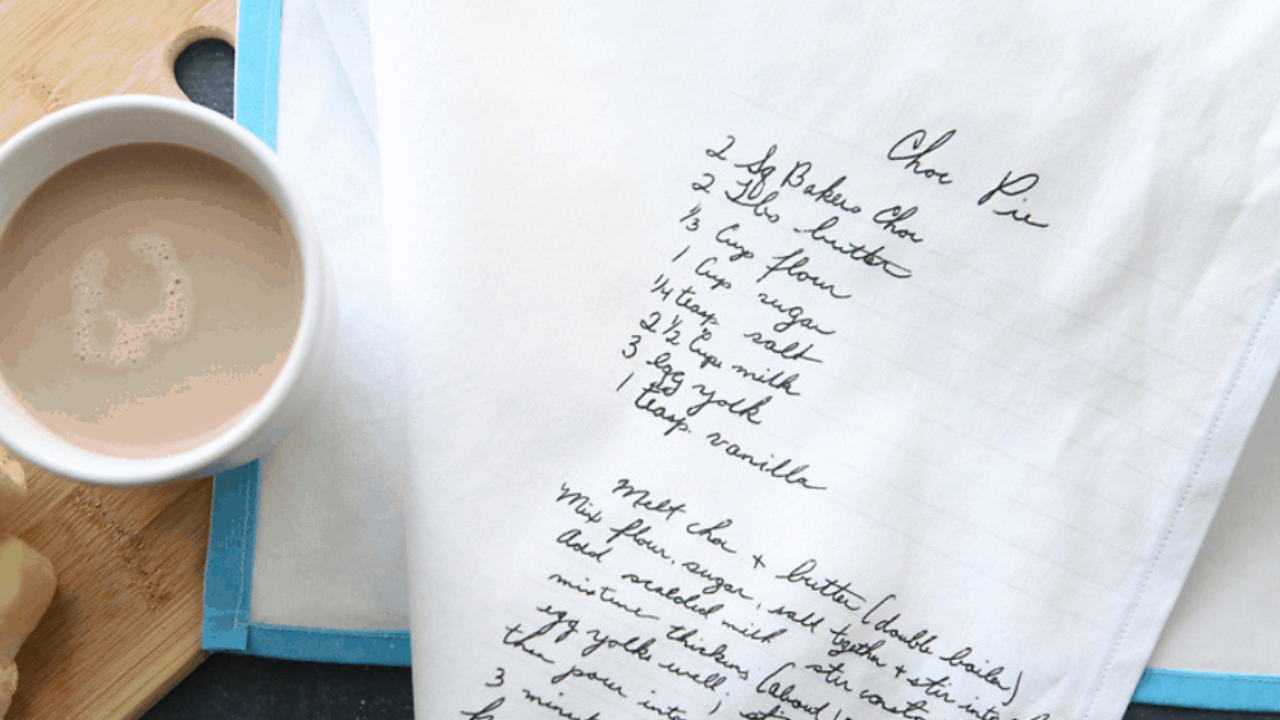 Choc Pie
2 Sq Bakers Choc
2 Tbs butter
1/3 Cup flour
1 Cup sugar
1/4 teasp salt
2 1/2 Cups milk
3 egg yolk
1 teasp. vanilla
Melt choc + butter (double boiler)
Mix flour, sugar, salt together + stir into
Add scalded milk stir
mixture thickens (about
egg yolks well;
then pour into
3